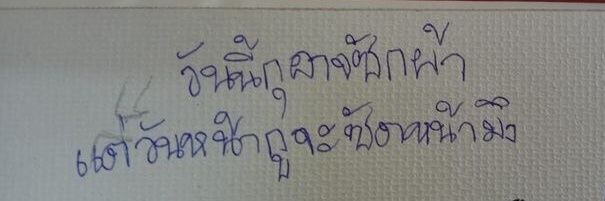 วันนี้กุอาจซักผ้า
แต่วันหน้ากูจะซัดหน้ามึง